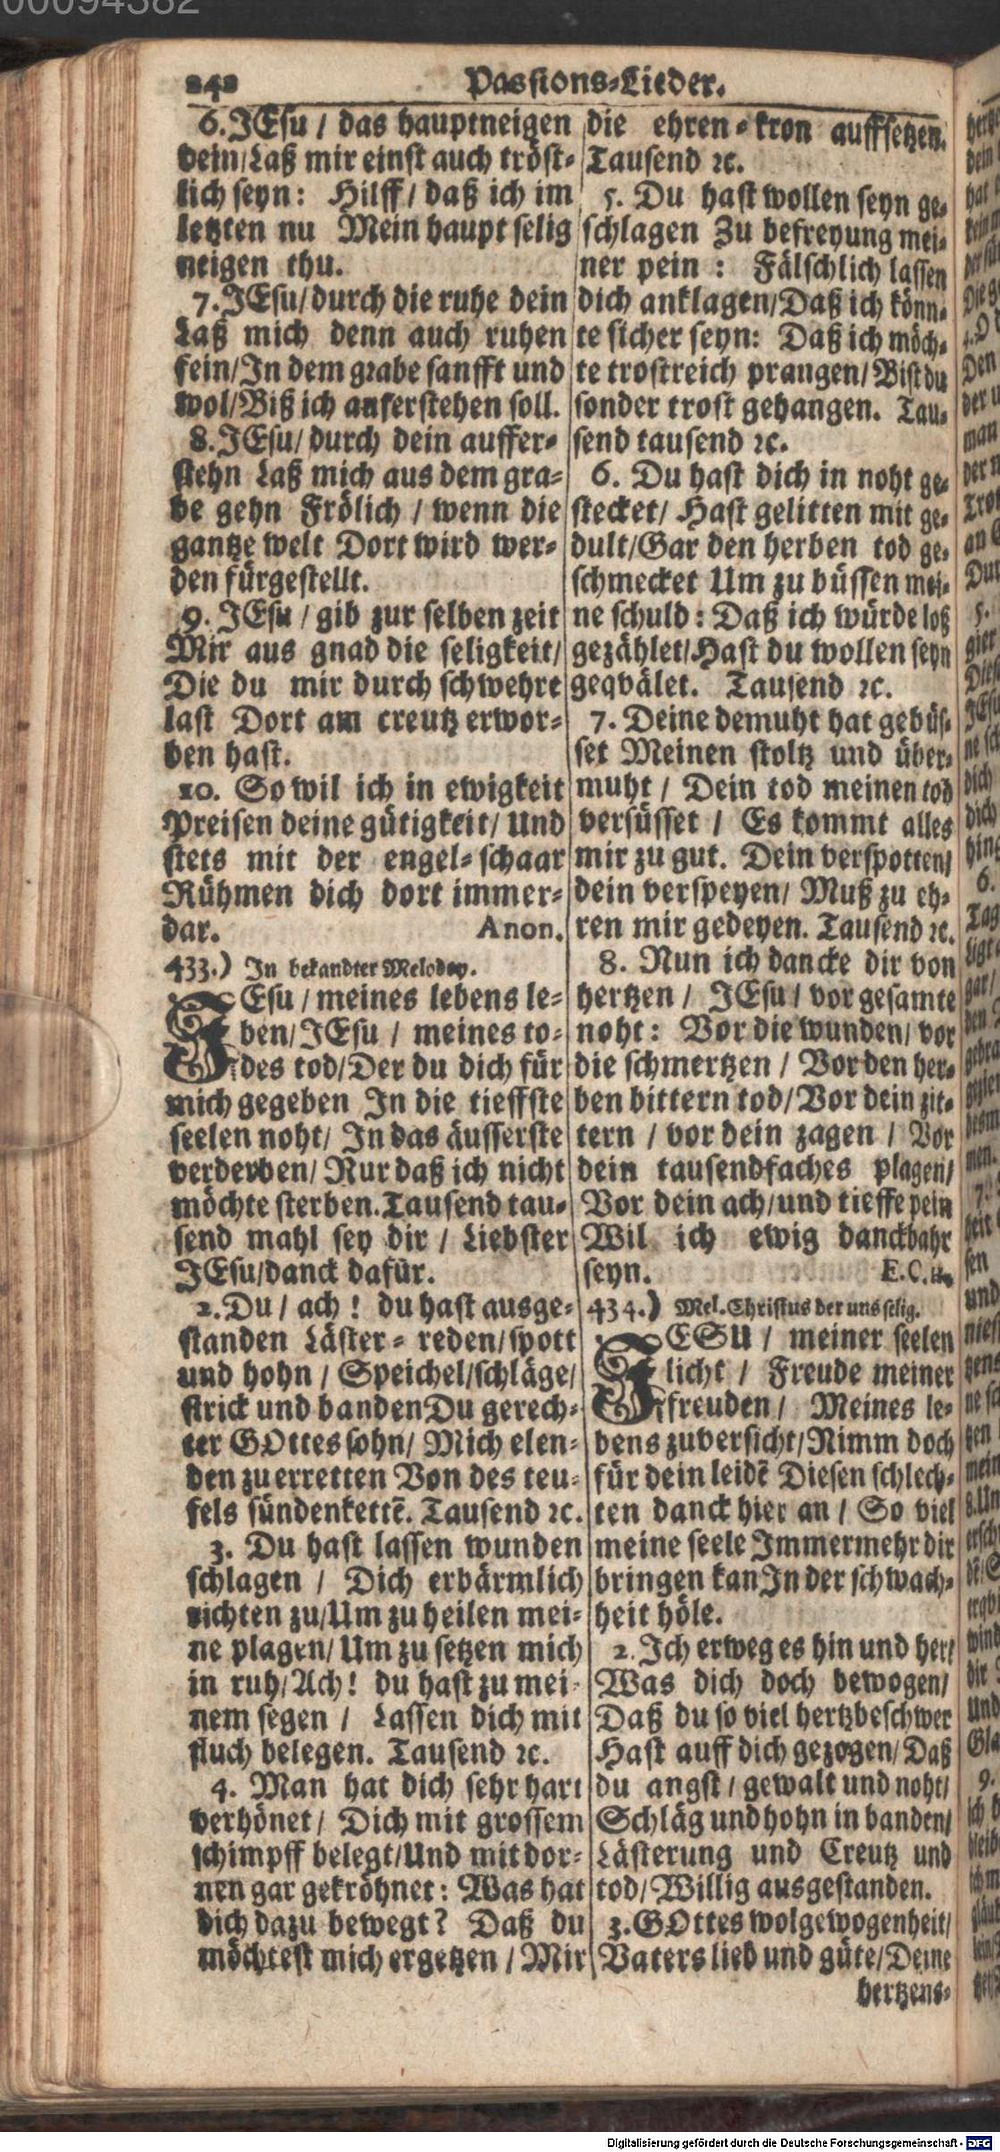 00094382
242 Passions-Lieder.
6. JEsu / das hauptneigen
dein/ Laß mir einst auch tröst-
lich seyn: Hilff / daß ich im
letzten nu Mein haupt selig
neigen thu.
7. JEsu/ durch die ruhe dein
Laß mich denn auch ruhen
fein/ In dem grabe sanfft und
wol/ Biß ich auferstehen soll.
8. JEsu/ durch dein auffer-
stehn Laß mich aus dem gra-
be gehn Frölich / wenn die
gantze welt Dort wird wer-
den fürgestellt.
9. JEsu / gib zur selben zeit
Mir aus gnad die seligkeit/
Die du mir durch schwehre
last Dort am creutz erwor-
ben hast.
10. So wil ich in ewigkeit
Preisen deine gütigkeit/ Und
stets mit der engel-schaar
Rühmen dich dort immer-
dar. Anon.
433.) In bekandter Melodey.
JEsu / meines lebens le-
ben/ JEsu / meines to-
des tod/ Der du dich für
mich gegeben In die tieffste
seelen noht/ In das äusserste
verderben/ Nur daß ich nicht
möchte sterben. Tausend tau-
send mahl sey dir / Liebster
JEsu/ danck dafür.
2. Du / ach ! du hast ausge-
standen Läster-reden/ spott
und hohn / Speichel/ schläge/
strick und banden Du gerech-
ter GOttes sohn/ Mich elen-
den zu erretten Von des teu-
fels sündenkettē. Tausend ꝛc.
3. Du hast lassen wunden
schlagen / Dich erbärmlich
richten zu/ Um zu heilen mei-
ne plagen/ Um zu setzen mich
in ruh/ Ach! du hast zu mei-
nem segen / Lassen dich mit
fluch belegen. Tausend ꝛc.
4. Man hat dich sehr hart
verhönet/ Dich mit grossem
schimpff belegt/ Und mit dor-
nen gar gekröhnet: Was hat
dich dazu bewegt? Daß du
möchtest mich ergetzen / Mir
die ehren-kron auffsetzen.
Tausend ꝛc.
5. Du hast wollen seyn ge-
schlagen Zu befreyung mei-
ner pein : Fälschlich lassen
dich anklagen/ Daß ich könn-
te sicher seyn: Daß ich möch-
te trostreich prangen/ Bist du
sonder trost gehangen. Tau-
send tausend ꝛc.
6. Du hast dich in noht ge-
stecket/ Hast gelitten mit ge-
dult/ Gar den herben tod ge-
schmecket Um zu büssen mei-
ne schuld: Daß ich würde loß
gezählet/ Hast du wollen seyn
geqvälet. Tausend ꝛc.
7. Deine demuht hat gebüs-
set Meinen stoltz und über-
muht / Dein tod meinen tod
versüsset / Es kommt alles
mir zu gut. Dein verspotten/
dein verspeyen/ Muß zu eh-
ren mir gedeyen. Tausend ꝛc.
8. Nun ich dancke dir von
hertzen / JEsu / vor gesamte
noht: Vor die wunden/ vor
die schmertzen / Vor den her-
ben bittern tod/ Vor dein zit-
tern / vor dein zagen / Vor
dein tausendfaches plagen/
Vor dein ach/ und tieffe pein
Wil ich ewig danckbahr
seyn. E.C.H.
434.) Mel. Christus der uns selig.
JESU / meiner seelen
licht / Freude meiner
freuden / Meines le-
bens zuversicht/ Nimm doch
für dein leidē Diesen schlech-
ten danck hier an / So viel
meine seele Immermehr dir
bringen kan In der schwach-
heit höle.
2. Ich erweg es hin und her/
Was dich doch bewogen/
Daß du so viel hertzbeschwer
Hast auff dich gezogen/ Daß
du angst / gewalt und noht/
Schläg und hohn in banden/
Lästerung und Creutz und
tod/ Willig ausgestanden.
3. GOttes wolgewogenheit/
Vaters lieb und güte/ Deine
hertzens-
Digitalisierung gefördert durch die Deutsche Forschungsgemeinschaft - DFG